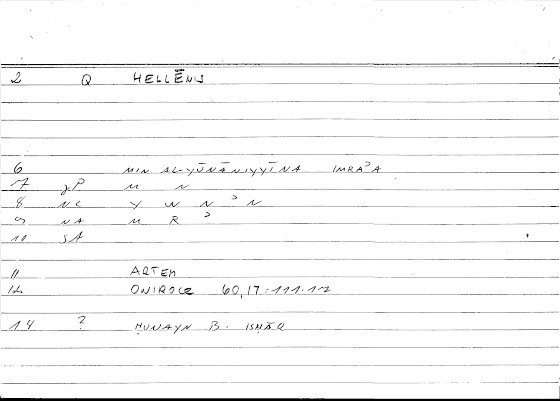 2 Q HELLĒNIS
6 MIN AL-YŪNĀNIYYĪNA IMRAʾA
7 gP M N
8 NC Y W N ʾ N
9 NA M R ʾ
10 SA
11 ARTEM
12 ONIROCE 60,17-111.17
14 ? ḤUNAYN B. ISḤĀQ